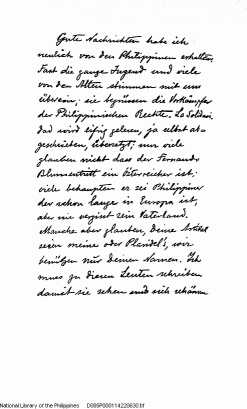 Gute Nachrichten habe ich
neulich von den Philippinen erhalten.
Fast die ganze Jugend und viele
von den Alten stimmen mit uns
überein; sie begrüssen die Vorkämpfer
der Philippinischen Rechte. La Solidari-
dad wird eifrig gelesen, ja selbst ab-
geschrieben, übersetzt; nur viele
glauben nicht dass der Fernando
Blumentritt ein Österreicher ist;
viele behaupten er sei Philippiner
der schon lange in Europa ist,
aber nie vergisst sein Vaterland.
Manche aber glauben, Deine Artikel
seien meine oder Plaridel's, wir
benützen nur Deinen Namen. Ich
muss zu diesen Leuten schreiben
damit sie sehen und sich schämen
National Library of the Philippines